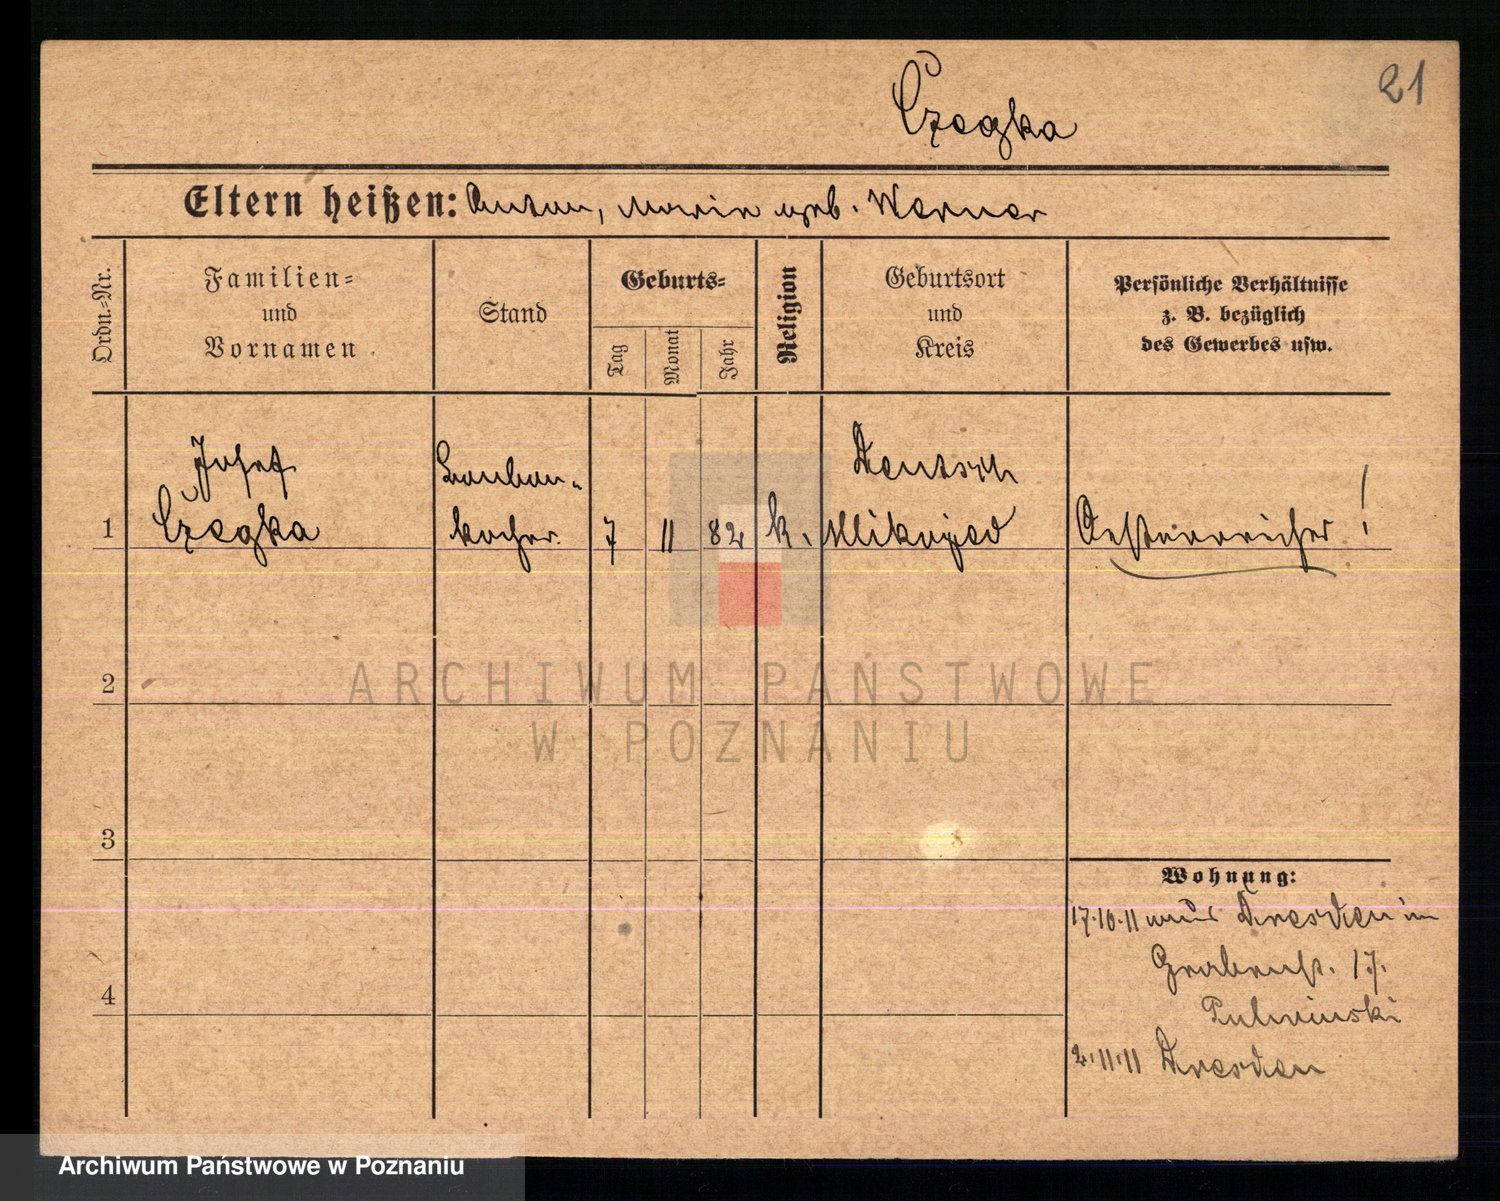 21
Czegka
Eltern heißen: Anton, Marie geb. Werner
Ordn.-Nr.
Familien-
und
Vornamen
Stand
Geburts-
Tag
Monat
Jahr
Religion
Geburtsort
und
Kreis
Persönliche Verhältnisse
z. B. bezüglich
des Gewerbes usw.
Josef
Czegka
Bonbon-
kocher.
Deutsch
1
7
11
82
k.
Mlikojed
Oesterreicher!
2
3
4
Wohnung:
17.10.11 aus Dresden in
Grabenst. 17.
Pulwinski
2.11.11 Dresden
ARCHIWUM PAŃSTWOWE
W POZNANIU
Archiwum Państwowe w Poznaniu